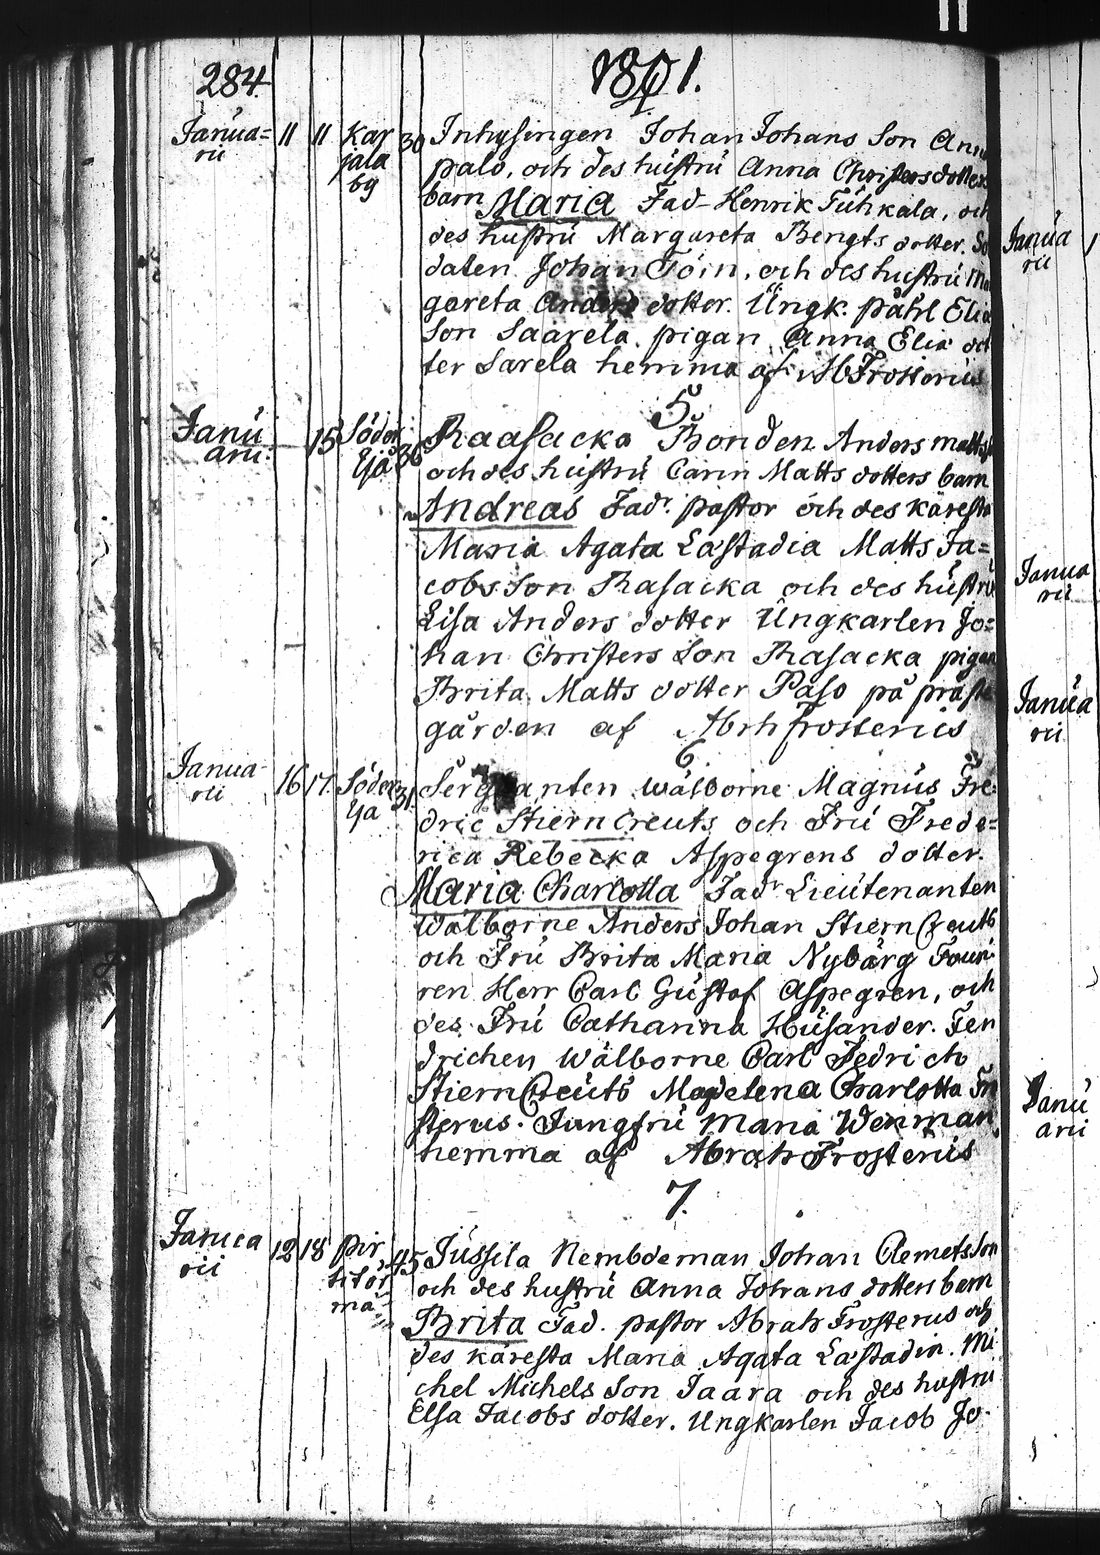 284. 1801.
Janua=
rii 11 11 Kar
jala
by 30 Inhysingen Johan Johans Son Ann
palo, och des hustru Anna Christersdotters
barn Maria Fad- Henrik Tuhkala, och
des hustru Margareta Bengts dotter. So
daten Johan Törn, och des hustru Ma
gareta Anders dotter. Ungk. påhl Elia
Son Saarela, pigan Anna Elia dot
ter Sarela hemma af AbFrosterius
5
Janu
arii. 15 Söder
Yja 36 Raasacka Bonden Anders matts
och des hustru Carin Matts dotters barn
Andreas Fadr. pastor och des käresta
Maria Agata Lastadia Matts Ja=
cobs Son Rasacka och des hustru
Lisa Anders dotter Ungkarlen Jo=
han Christers Son Rasacka pigan
Brita Matts dotter Paso på präste
gården af Abrh frosterius
6.
Janua-
rii 16 17. Söder
Yja 31. Sergeanten wälborne Magnus Fre-
dric Stierncreuts och Fru Frede=
rica Rebecka Aspegrens dotter.
Maria Charlotta Fadr Lieutenanten
Wälborne Anders Johan StiernCreuts
och Fru Brita Maria Nybärg Fouri-
ren Herr Carl Gustaf Aspegren, och
des Fru Catharina Husander. Fen
drichen wälborne Carl Fedrich
StiernCreuts Magdelena Charlotta Fro
sterus. Jungfru Maria Wenman
hemma af Abrah Frosterius
7.
Janua
rii 12 18 pir
titör
mä 45 Jussila Nembdeman Johan Clemets Son
och des hustru Anna Johans dotters barn
Brita Fad. pastor Abrah Frosterus och
des käresta Maria Agata Lastadia. Mi
chel Michels Son Jaara och des hustru
Elsa Jacobs dotter. Ungkarlen Jacob Jo-
Janua
rii
Janua
rii
Janua
rii
Janu
arii